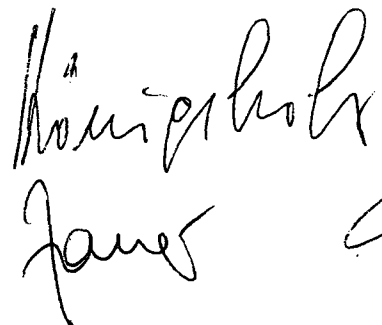 Königsholz
Jauer